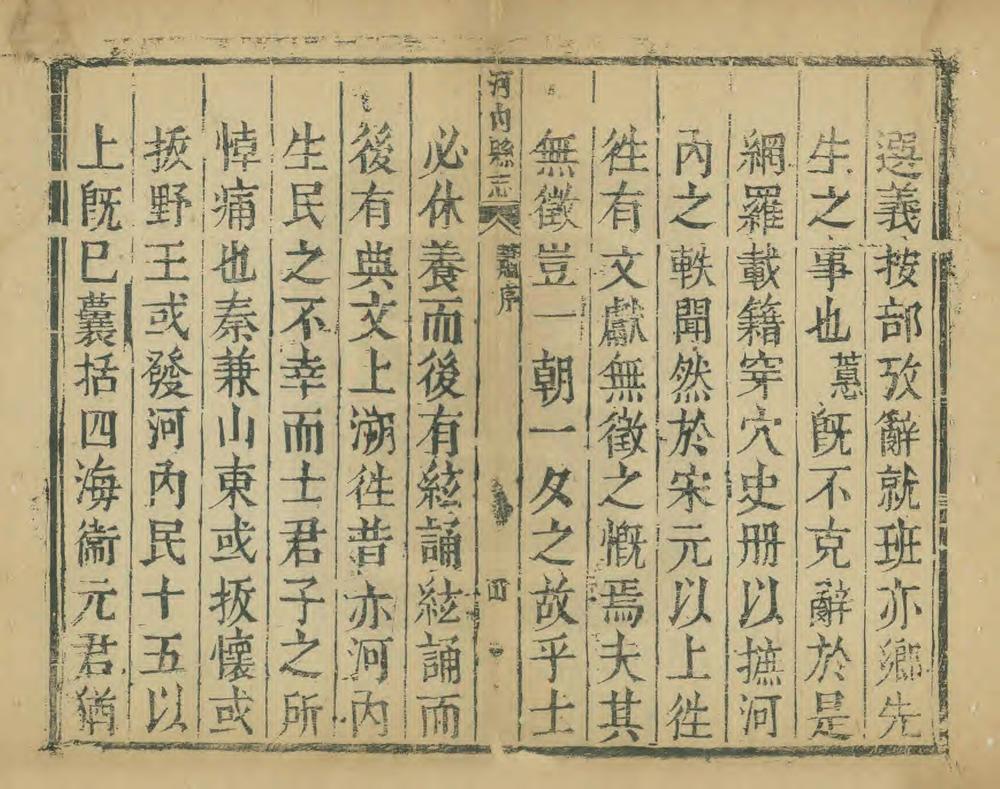 選義按部攷辭就班亦鄉先
生之事也蕙旣不克辭於是
網羅載籍穿穴史册以摭河
內之軼聞然於宋元以上徃
徃有文獻無徵之慨焉夫其
無徵豈一朝一夕之故乎土
河內縣志
蕭序
四
必休養而後有絃誦絃誦而
後有典文上溯徃昔亦河內
生民之不幸而士君子之所
悼痛也秦兼山東或拔懷或
拔野王或發河內民十五以
上旣已囊括四海衞元君猶